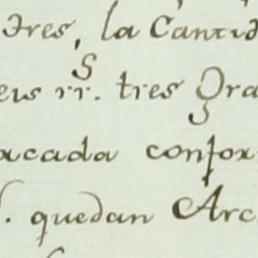 tres, la Cantid
eis rr.s tres Gra
acada confor
quedan Arc